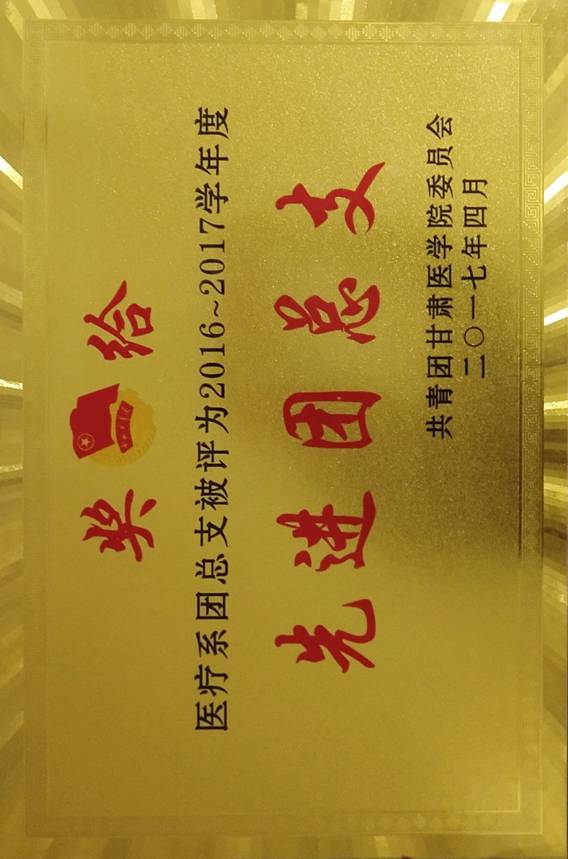 奖给
医疗系团总支被评为2016~2017学年度
先进团总支
共青团甘肃医学院委员会
二〇一七年四月